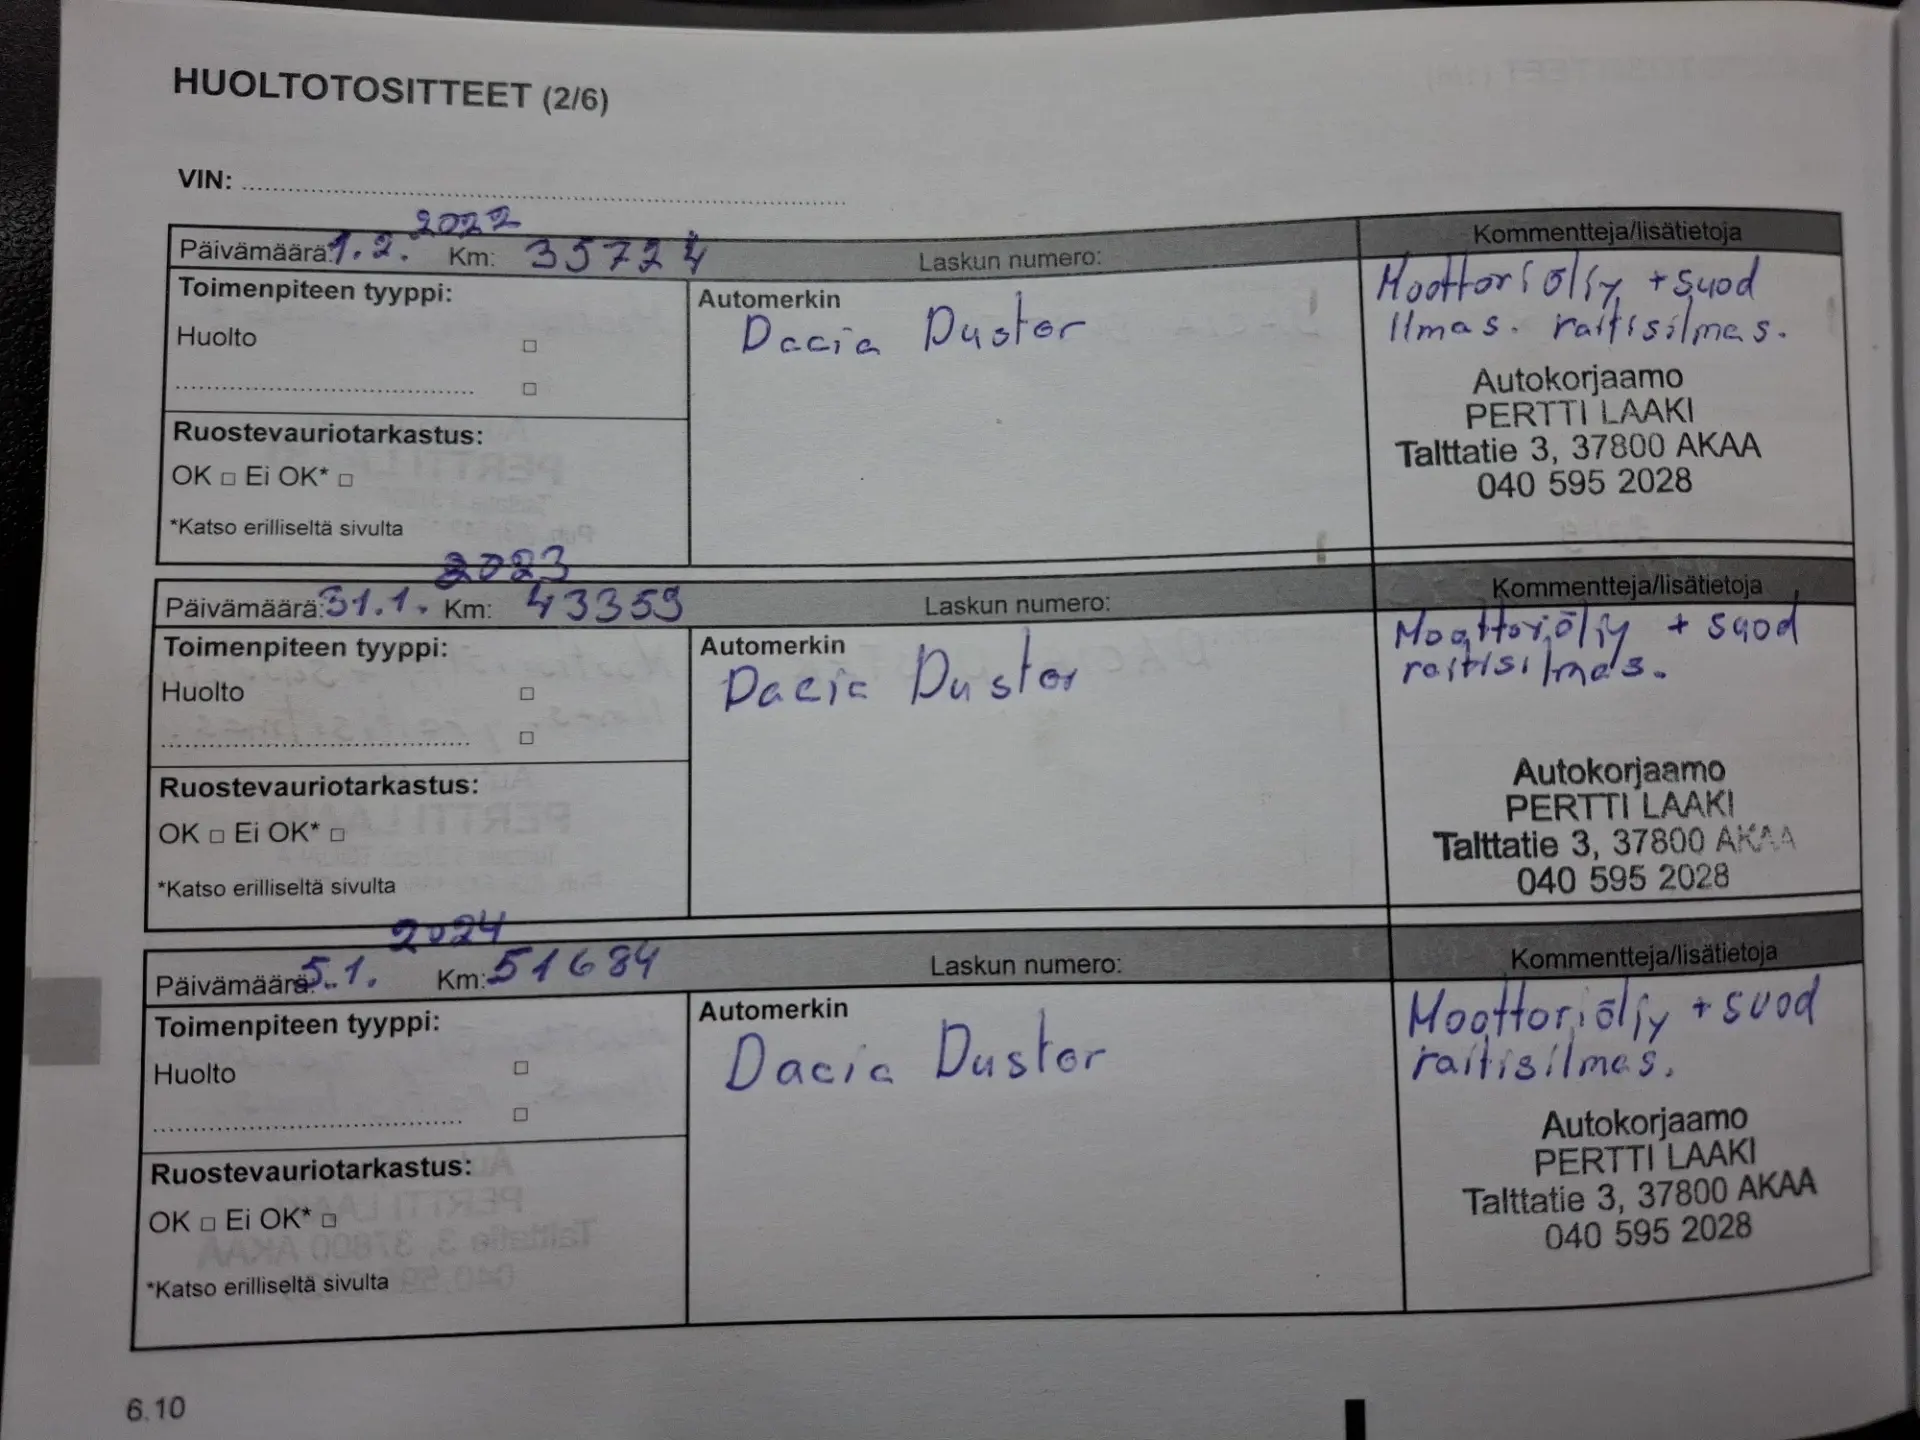 HUOLTOTOSITTEET (2/6)
VIN:
2022
Päivämäärä: 1.2. Km: 35724 Laskun numero: Kommentteja/lisätietoja
Toimenpiteen tyyppi:
Huolto
Ruostevauriotarkastus:
OK □ Ei OK* □
*Katso erilliseltä sivulta
Automerkin
Dacia Duster
Moottoriöljy + suod
Ilmas. raitisilmas.
Autokorjaamo
PERTTI LAAKI
Talttatie 3, 37800 AKAA
040 595 2028
2023
Päivämäärä: 31.1. Km: 43359 Laskun numero: Kommentteja/lisätietoja
Toimenpiteen tyyppi:
Huolto
Ruostevauriotarkastus:
OK □ Ei OK* □
*Katso erilliseltä sivulta
Automerkin
Dacia Duster
Moottoriöljy + suod
raitisilmas.
Autokorjaamo
PERTTI LAAKI
Talttatie 3, 37800 AKAA
040 595 2028
2024
Päivämäärä: 5.1. Km: 51684 Laskun numero: Kommentteja/lisätietoja
Toimenpiteen tyyppi:
Huolto
Ruostevauriotarkastus:
OK □ Ei OK* □
*Katso erilliseltä sivulta
Automerkin
Dacia Duster
Moottoriöljy + suod
raitisilmas.
Autokorjaamo
PERTTI LAAKI
Talttatie 3, 37800 AKAA
040 595 2028
6.10